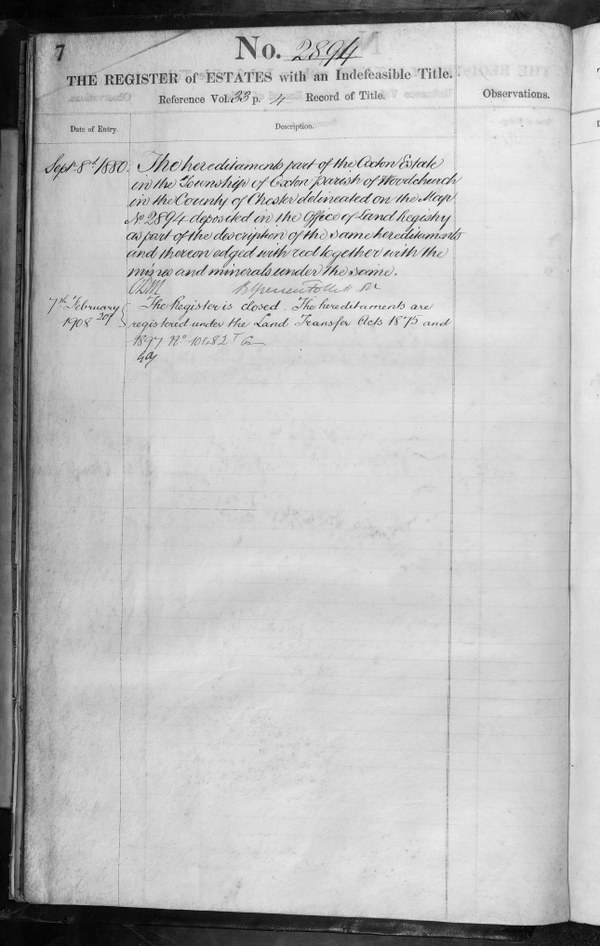 7
No. 2894
THE REGISTER of ESTATES with an Indefeasible Title.
Reference Vol. 33 p. 4 Record of Title.
Observations.
Date of Entry.
Description.
Sept 8th 1880.
The hereditaments part of the Oxton Estate
in the Township of Oxton parish of Woodchurch
in the County of Chester delineated on the Map
No 2894 deposited in the Office of Land Registry
as part of the description of the same hereditaments
and thereon edged with red together with the
mines and minerals under the same.
7th February
1908
The Register is closed. The hereditaments are
registered under the Land Transfer Acts 1875 and
1897 No